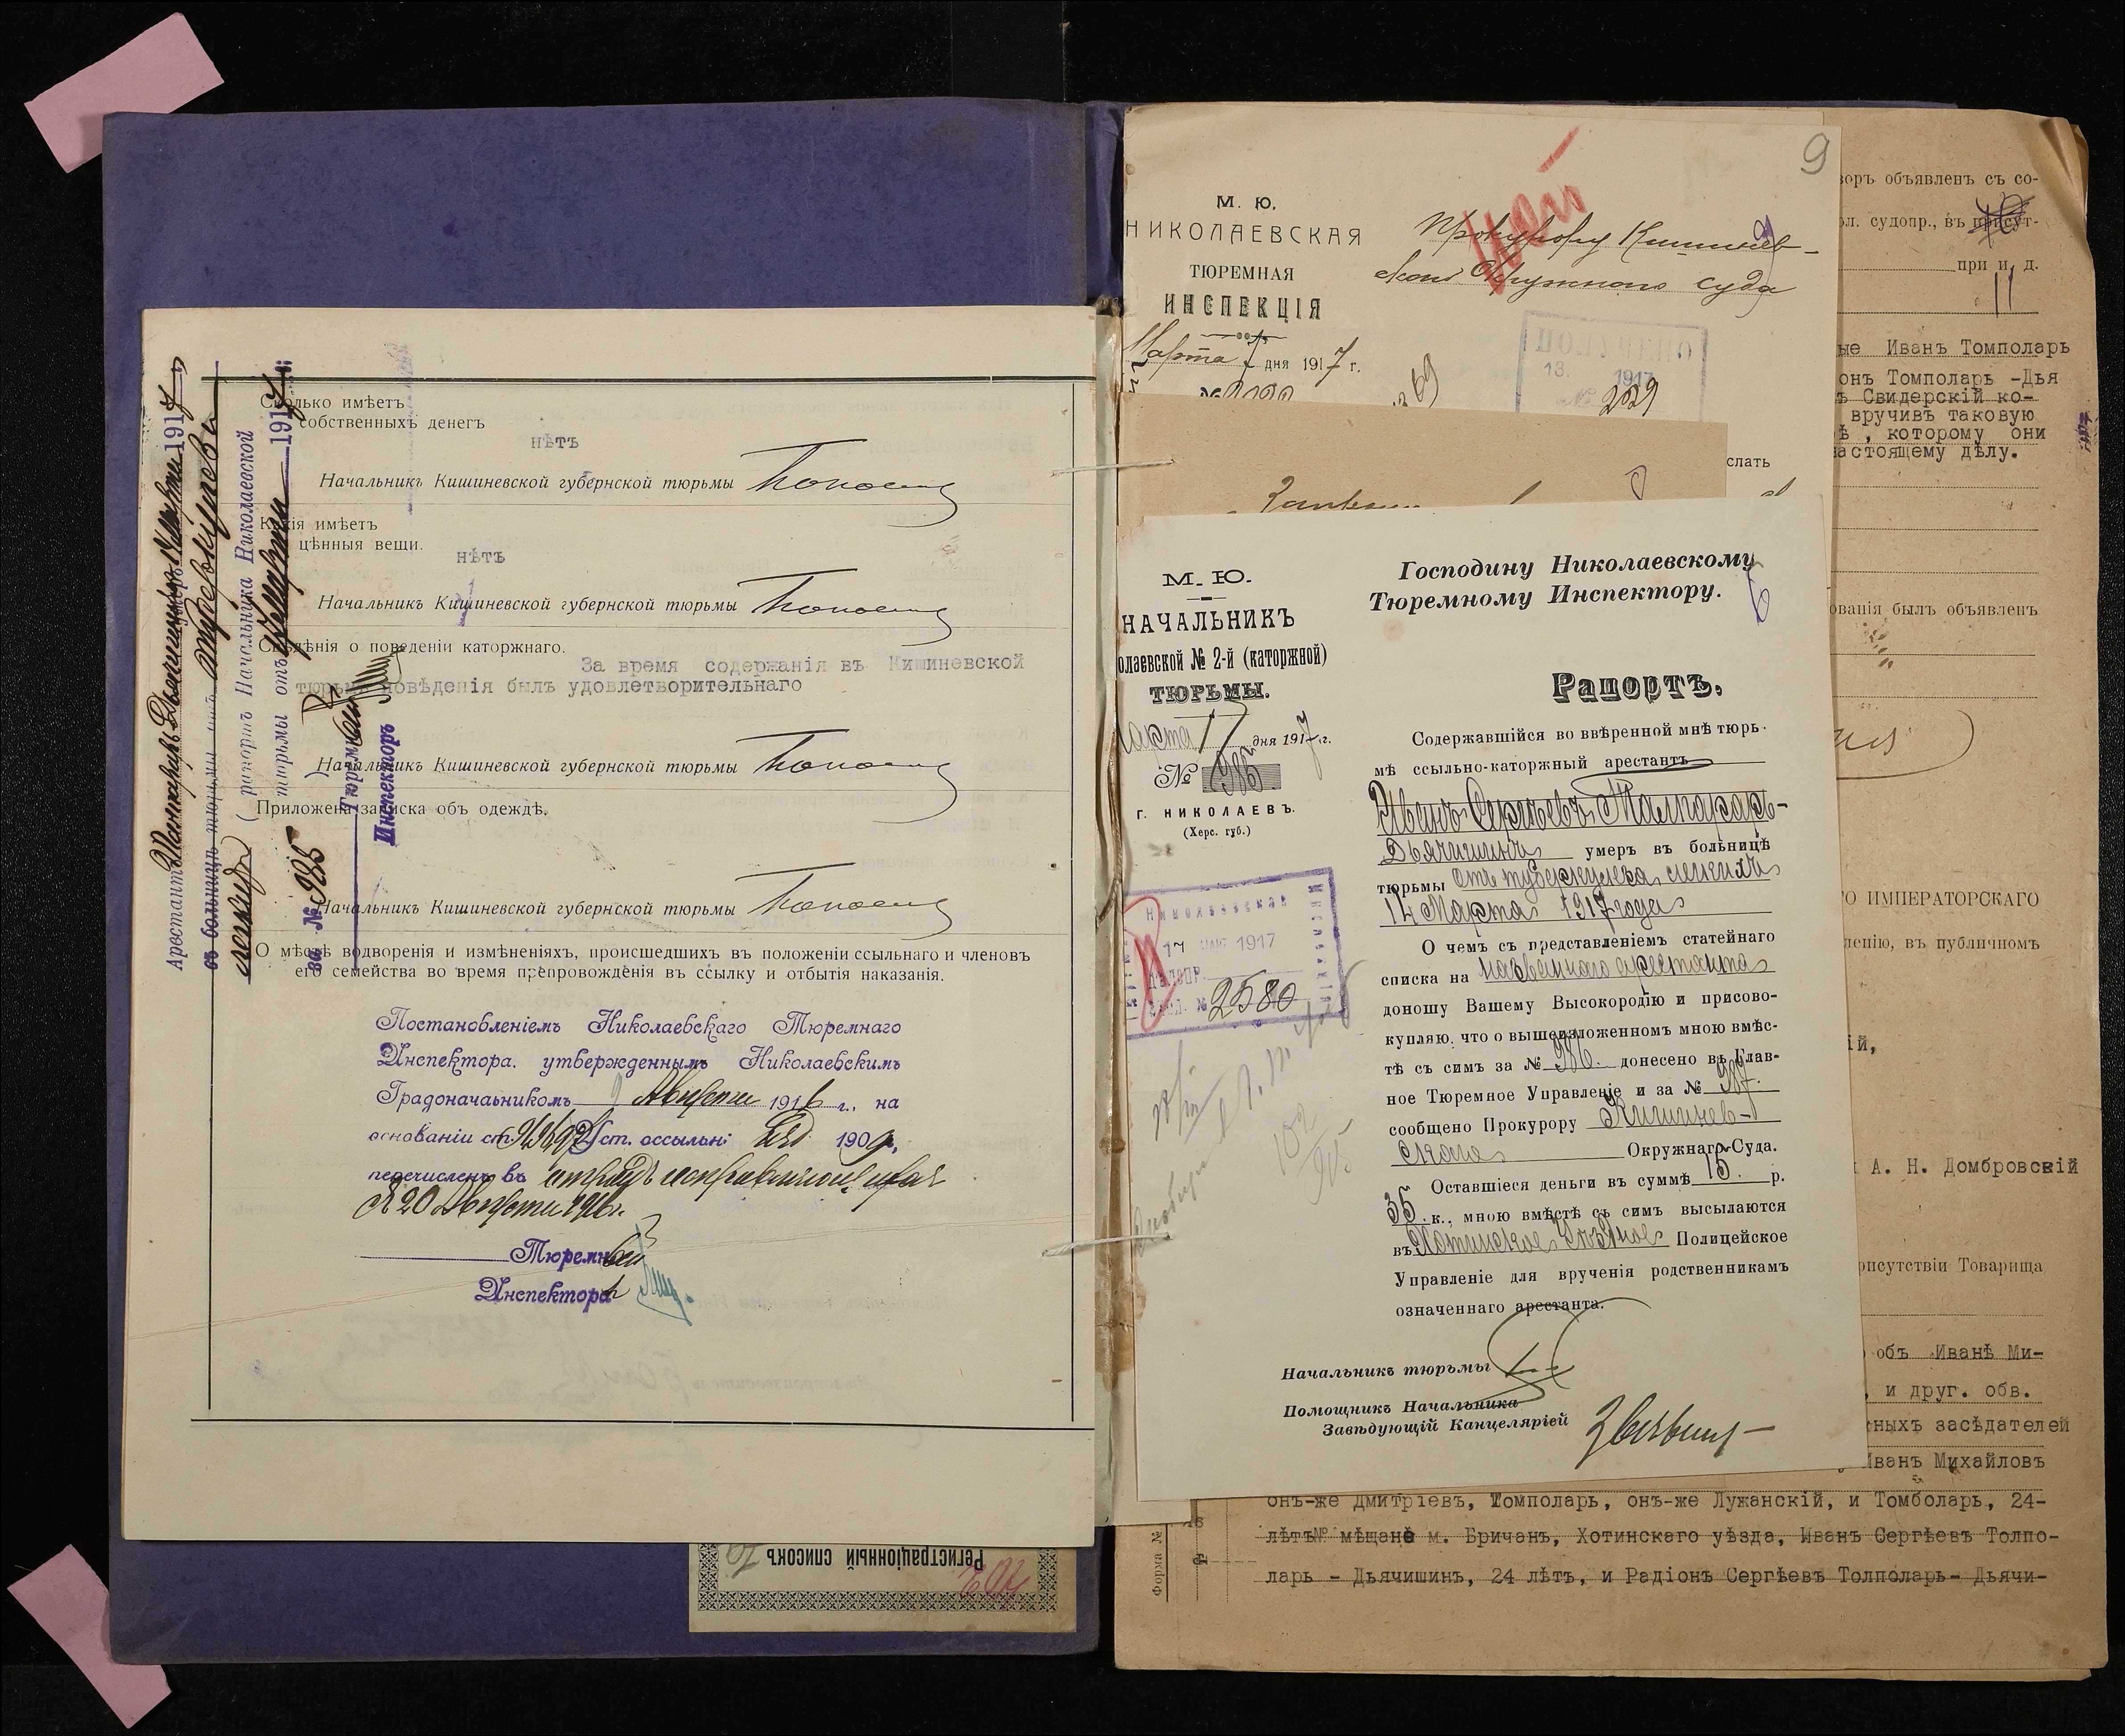 Сколько имѣетъ
собственныхъ денегъ
нѣтъ
Начальникъ Кишиневской губернской тюрьмы
Какія имѣетъ
цѣнныя вещи.
нѣтъ
Начальникъ Кишиневской губернской тюрьмы
Свѣдѣнія о поведеніи каторжнаго.
За время содержанія въ Кишиневской
тюрьмѣ поведенія былъ удовлетворительнаго
Начальникъ Кишиневской губернской тюрьмы
Приложена записка объ одеждѣ.
Начальникъ Кишиневской губернской тюрьмы
О мѣстѣ водворенія и измѣненіяхъ, происшедшихъ въ положеніи ссыльнаго и членовъ
его семейства во время препровожденія въ ссылку и отбытія наказанія.
Постановленіемъ Николаевскаго Тюремнаго
Инспектора, утвержденнымъ Николаевскимъ
Градоначальникомъ 9 Августа 1916 г., на
основаніи ст. Уст. о ссыльн. изд. 1909 г.
перечисленъ въ отрядъ исправляющихся
20 Августа 1916 г.
Тюремн
Инспектора
Арестантъ умеръ 1917
въ больницѣ тюрьмы отъ туберкулеза
легкихъ (рапортъ Начальника Николаевской
тюрьмы отъ 1917
за № 985)
Тюремный
Инспекторъ
Регистраціонный списокъ
9
М. Ю.
НИКОЛАЕВСКАЯ
ТЮРЕМНАЯ
ИНСПЕКЦІЯ
Марта 7 дня 1917 г.
Прокурору Кишинев-
скаго Окружнаго суда
ПОЛУЧЕНО
13. 1917
№ 229
слать
М. Ю.
НАЧАЛЬНИКЪ
олаевской № 2-й (каторжной)
ТЮРЬМЫ.
Марта 17 дня 1917 г.
№ 985
г. НИКОЛАЕВЪ.
(Херс. губ.)
17 МАР 1917
№ 2580
Господину Николаевскому
Тюремному Инспектору.
Рапортъ.
Содержавшійся во ввѣренной мнѣ тюрь-
мѣ ссыльно-каторжный арестантъ
Иванъ Сергѣевъ Талпаларь-
Дьячишинъ умеръ въ больницѣ
тюрьмы отъ туберкулеза легкихъ
14 Марта 1917 года
О чемъ съ представленіемъ статейнаго
списка на названнаго арестанта
доношу Вашему Высокородію и присово-
купляю, что о вышеизложенномъ мною вмѣс-
тѣ съ симъ за № 986. донесено въ Глав-
ное Тюремное Управленіе и за № 987.
сообщено Прокурору Кишинев-
скаго Окружнаго Суда.
Оставшіеся деньги въ суммѣ 15. р.
35 к., мною вмѣстѣ съ симъ высылаются
въ Хотинское Уѣздное Полицейское
Управленіе для врученія родственникамъ
означеннаго арестанта.
Начальникъ тюрьмы
Помощникъ Начальника
Завѣдующій Канцеляріей
воръ объявленъ съ со-
ол. судопр., въ присут-
при и. д.
11
ые Иванъ Томполарь
онъ Томполарь -Дья
ъ Свидерскій ко-
вручивъ таковую
ѣ , которому они
настоящему дѣлу.
ованія былъ объявленъ
ГО ИМПЕРАТОРСКАГО
ленію, въ публичномъ
ій,
А. Н. Домбровскій
рисутствіи Товарища
объ Иванѣ Ми-
, и друг. обв.
ныхъ засѣдателей
Иванъ Михайловъ
онъ-же Дмитріевъ, Томполарь, онъ-же Лужанскій, и Томболарь, 24-
лѣтъ мѣщане м. Бричанъ, Хотинскаго уѣзда, Иванъ Сергѣевъ Толпо-
ларь - Дьячишинъ, 24 лѣтъ, и Радіонъ Сергѣевъ Толполарь- Дьячи-
Форма №